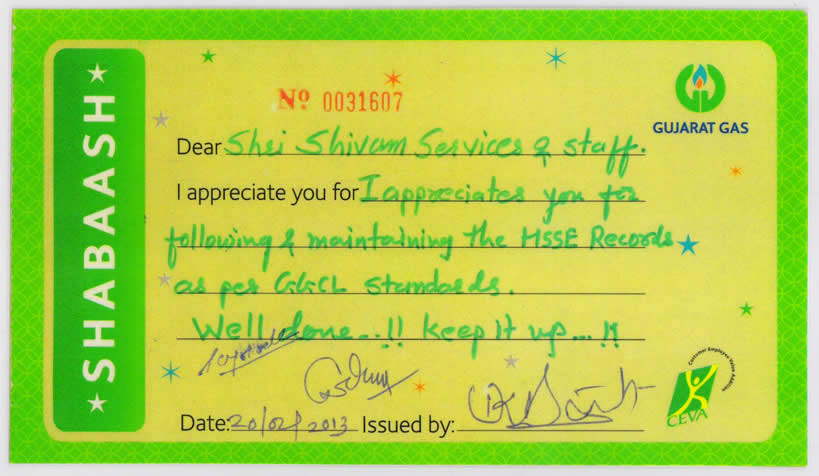 SHABAASH
Nº 0031607
GUJARAT GAS
Dear Shri Shivam Services & staff.
I appreciate you for I appreciates you for
following & maintaining the HSSE Records
as per GGCL standards.
Well done...!! keep it up...!!
Date: 20/02/2013 Issued by:
Customer Employee Value Addition
CEVA